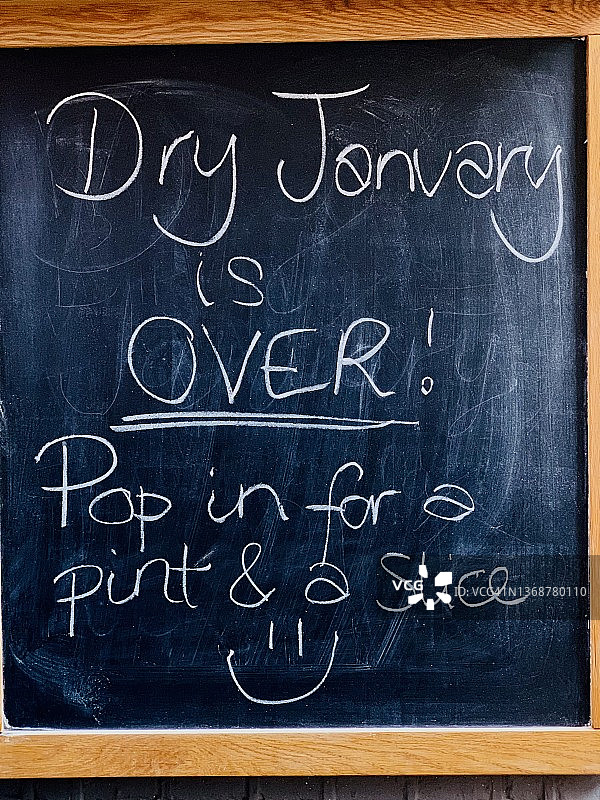 Dry January
is
OVER!
Pop in for a
pint & a Slice
VCG ID: VCG41N1368780110